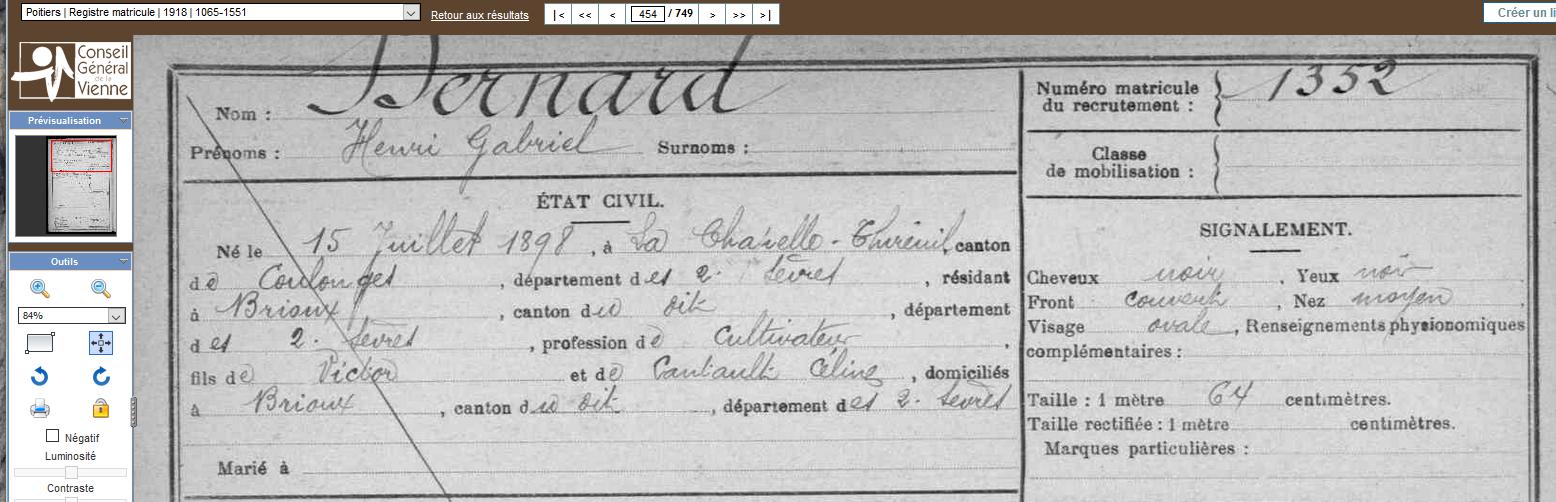 Poitiers | Registre matricule | 1918 | 1065-1551
Retour aux résultats
|< << < 454 / 749 > >> >|
Créer un li
Conseil
Général
de la
Vienne
Prévisualisation
Outils
84%
Négatif
Luminosité
Contraste
Nom : Bernard
Prénoms : Henri Gabriel Surnoms :
ÉTAT CIVIL.
Né le 15 Juillet 1898, à La Chapelle-Thireuil, canton
de Coulonges, département des 2. Sèvres, résidant
à Brioux, canton du dit, département
des 2. Sèvres, profession de Cultivateur,
fils de Victor et de Céline, domiciliés
à Brioux, canton du dit, département des 2. Sèvres
Marié à
Numéro matricule
du recrutement : 1352
Classe
de mobilisation :
SIGNALEMENT.
Cheveux noir, Yeux noir
Front couvert, Nez moyen,
Visage ovale, Renseignements physionomiques
complémentaires :
Taille : 1 mètre 64 centimètres.
Taille rectifiée : 1 mètre centimètres.
Marques particulières :